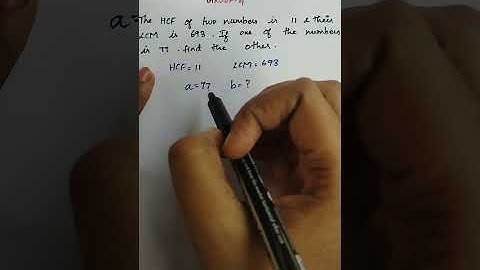 a = The HCF of two numbers is 11 & their
LCM is 693. If one of the numbers
is 77. find the other.
HCF = 11 LCM = 693
a = 77 b = ?